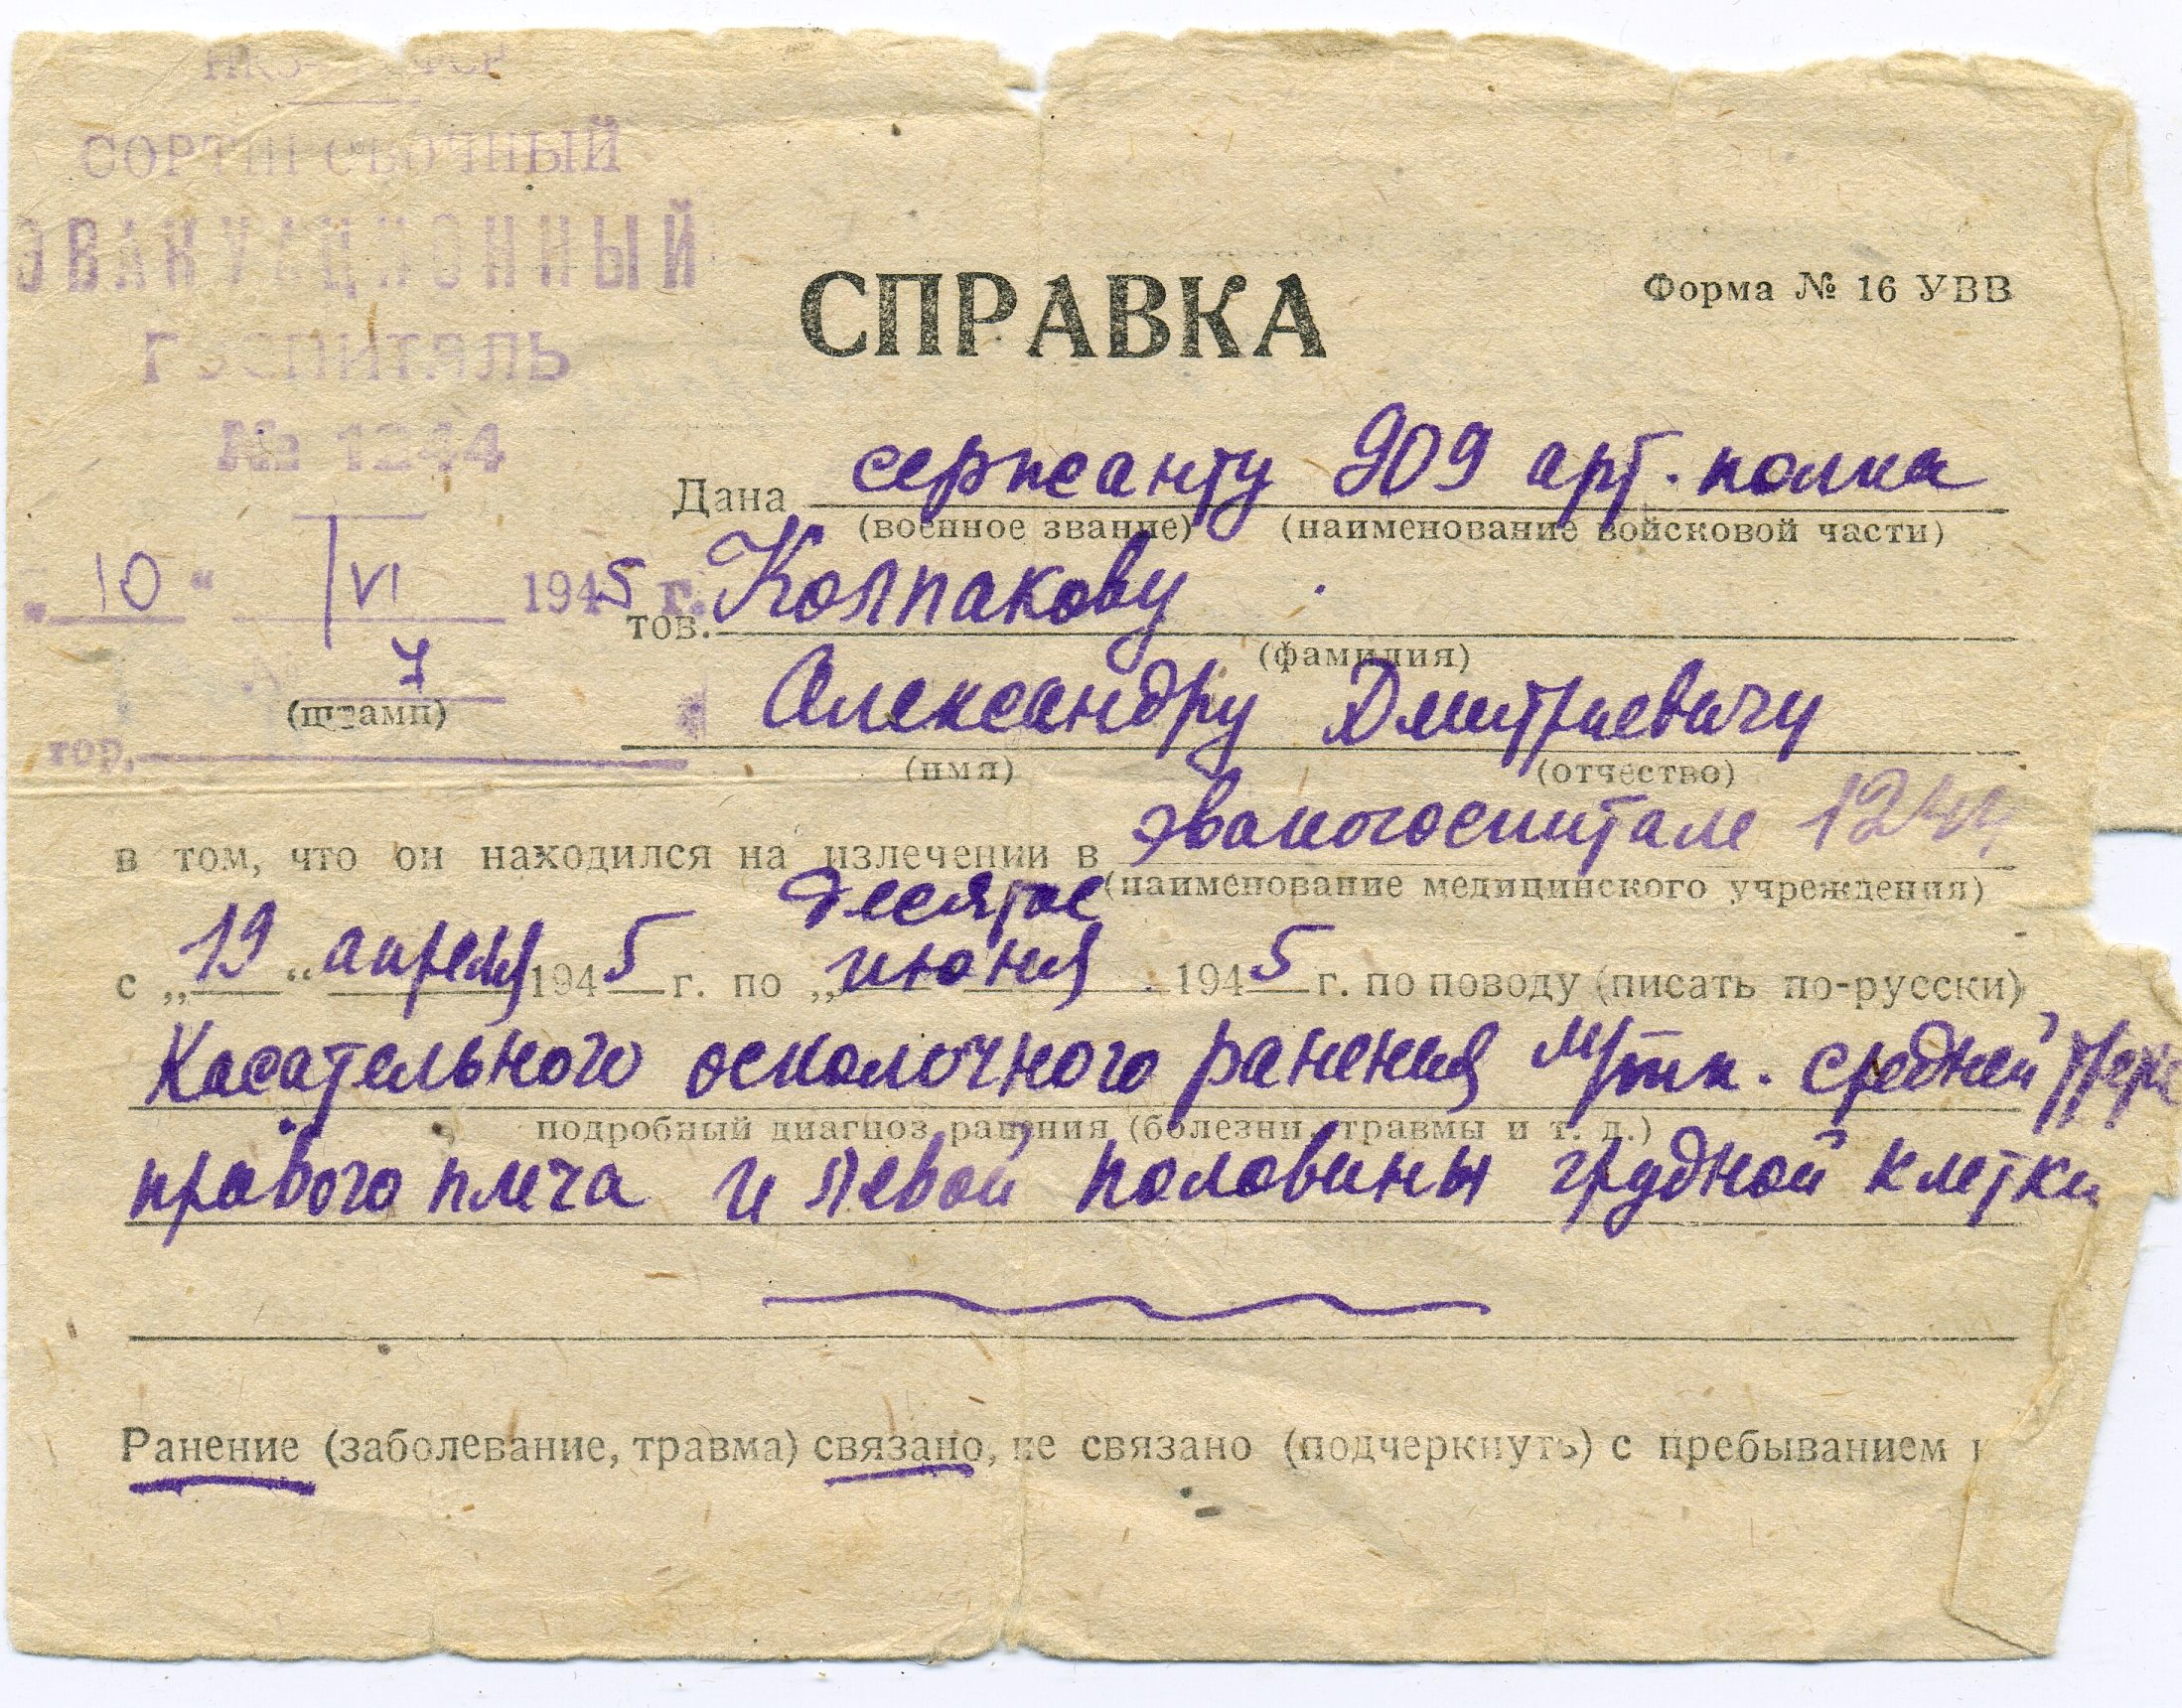 СОРТИРОВОЧНЫЙ
ЭВАКУАЦИОННЫЙ
ГОСПИТАЛЬ
№ 1244
"10" VI 1945 г.
№ 7
(штамп)
гор.
СПРАВКА
Форма № 16 УВВ
Дана сержанту 909 арт. полка
(военное звание) (наименование войсковой части)
тов. Колпакову
(фамилия)
Александру Дмитриевичу
(имя) (отчество)
в том, что он находился на излечении в эвакогоспитале 1244
(наименование медицинского учреждения)
десятое
с „19" апреля 1945 г. по „июня 1945 г. по поводу (писать по-русски)
Касательного осколочного ранения м/тк. средней трети
подробный диагноз ранения (болезни, травмы и т. д.)
правого плеча и левой половины грудной клетки
Ранение (заболевание, травма) связано, не связано (подчеркнуть) с пребыванием